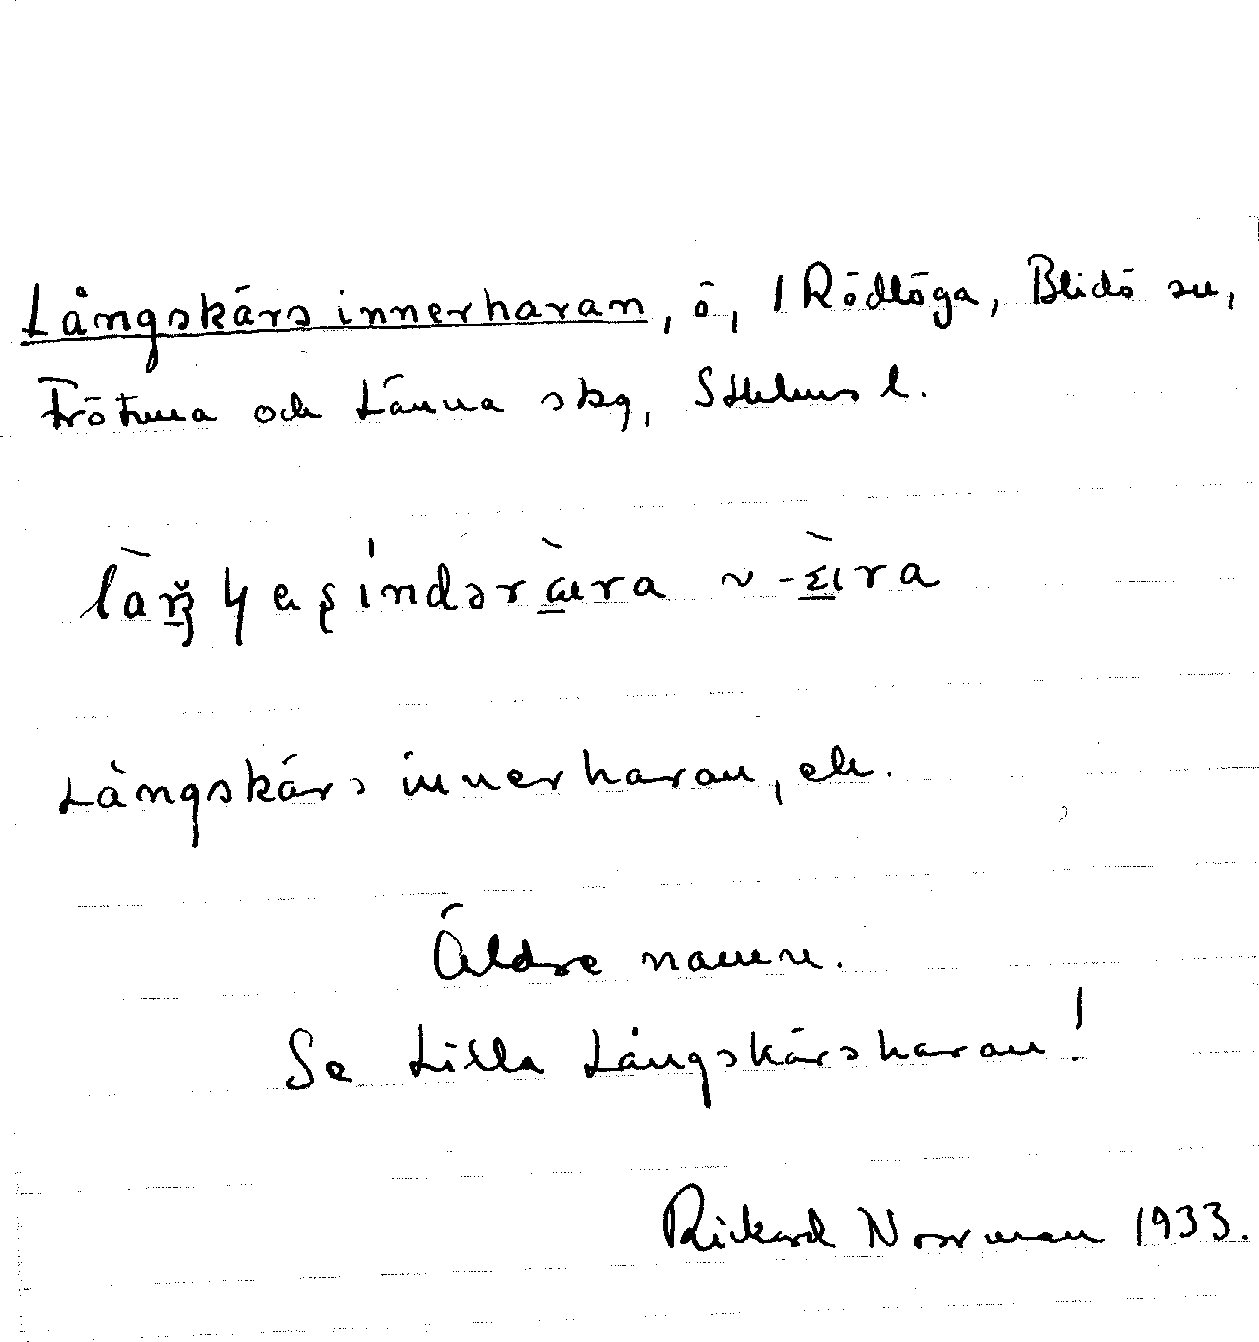 Långskärs innerharan, ö, / Rödlöga, Blidö sn,
Frötuna och Länna skg, Sthlms l.
Långskärs innerharan, ek.
Äldre namn.
Se Lilla Långskärsharan!
Rickard Norrman 1933.